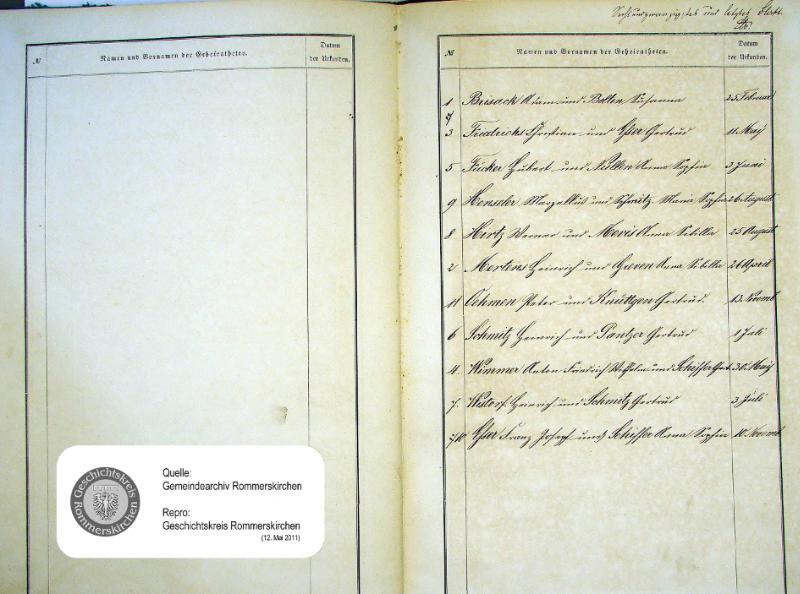 №
Namen und Vornamen der Geheiratheten.
Datum
der Urkunden.
Sechsundzwanzigstes und letztes Blatt.
№
Namen und Vornamen der Geheiratheten.
Datum
der Urkunden.
1 Brisack Adam und Bolten Susanna 25 Februar
3 Friedrichs Christian und Esser Gertrud 11 May
5 Fücker Hubert und Nüllen Anna Sophia 3 Juni
9 Henseler und Schmitz Maria Sophia 26 August
8 Hertz Werner und Mevis Anna Sibilla 25 August
2 Mertens Heinrich und Greven Anna Sibilla 26 April
11 Oehmen Peter und Knüttgen Gertrud. 13. Novemb
6 Schmitz Heinrich und Pantzer Gertrud 1 Juli
4. Wimmer Anton Friedrich Wilhelm und Schiffer Gert. 30. May
7. Wistorf Heinrich und Schmitz Gertrud 3 Juli
10 Esser Franz Joseph und Schiffer Anna Sophia 10. Novemb
Geschichtskreis
Rommerskirchen
Quelle:
Gemeindearchiv Rommerskirchen
Repro:
Geschichtskreis Rommerskirchen
(12. Mai 2011)